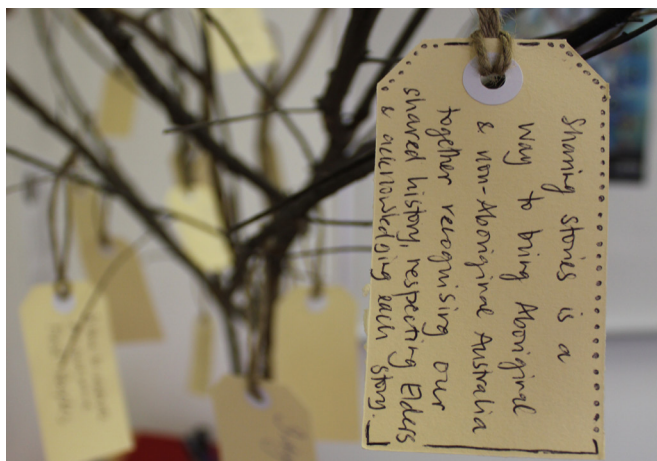 Sharing stories is a
way to bring Aboriginal
& non-Aboriginal Australia
together recognising our
shared history, respecting Elders
& acknowledging each story.